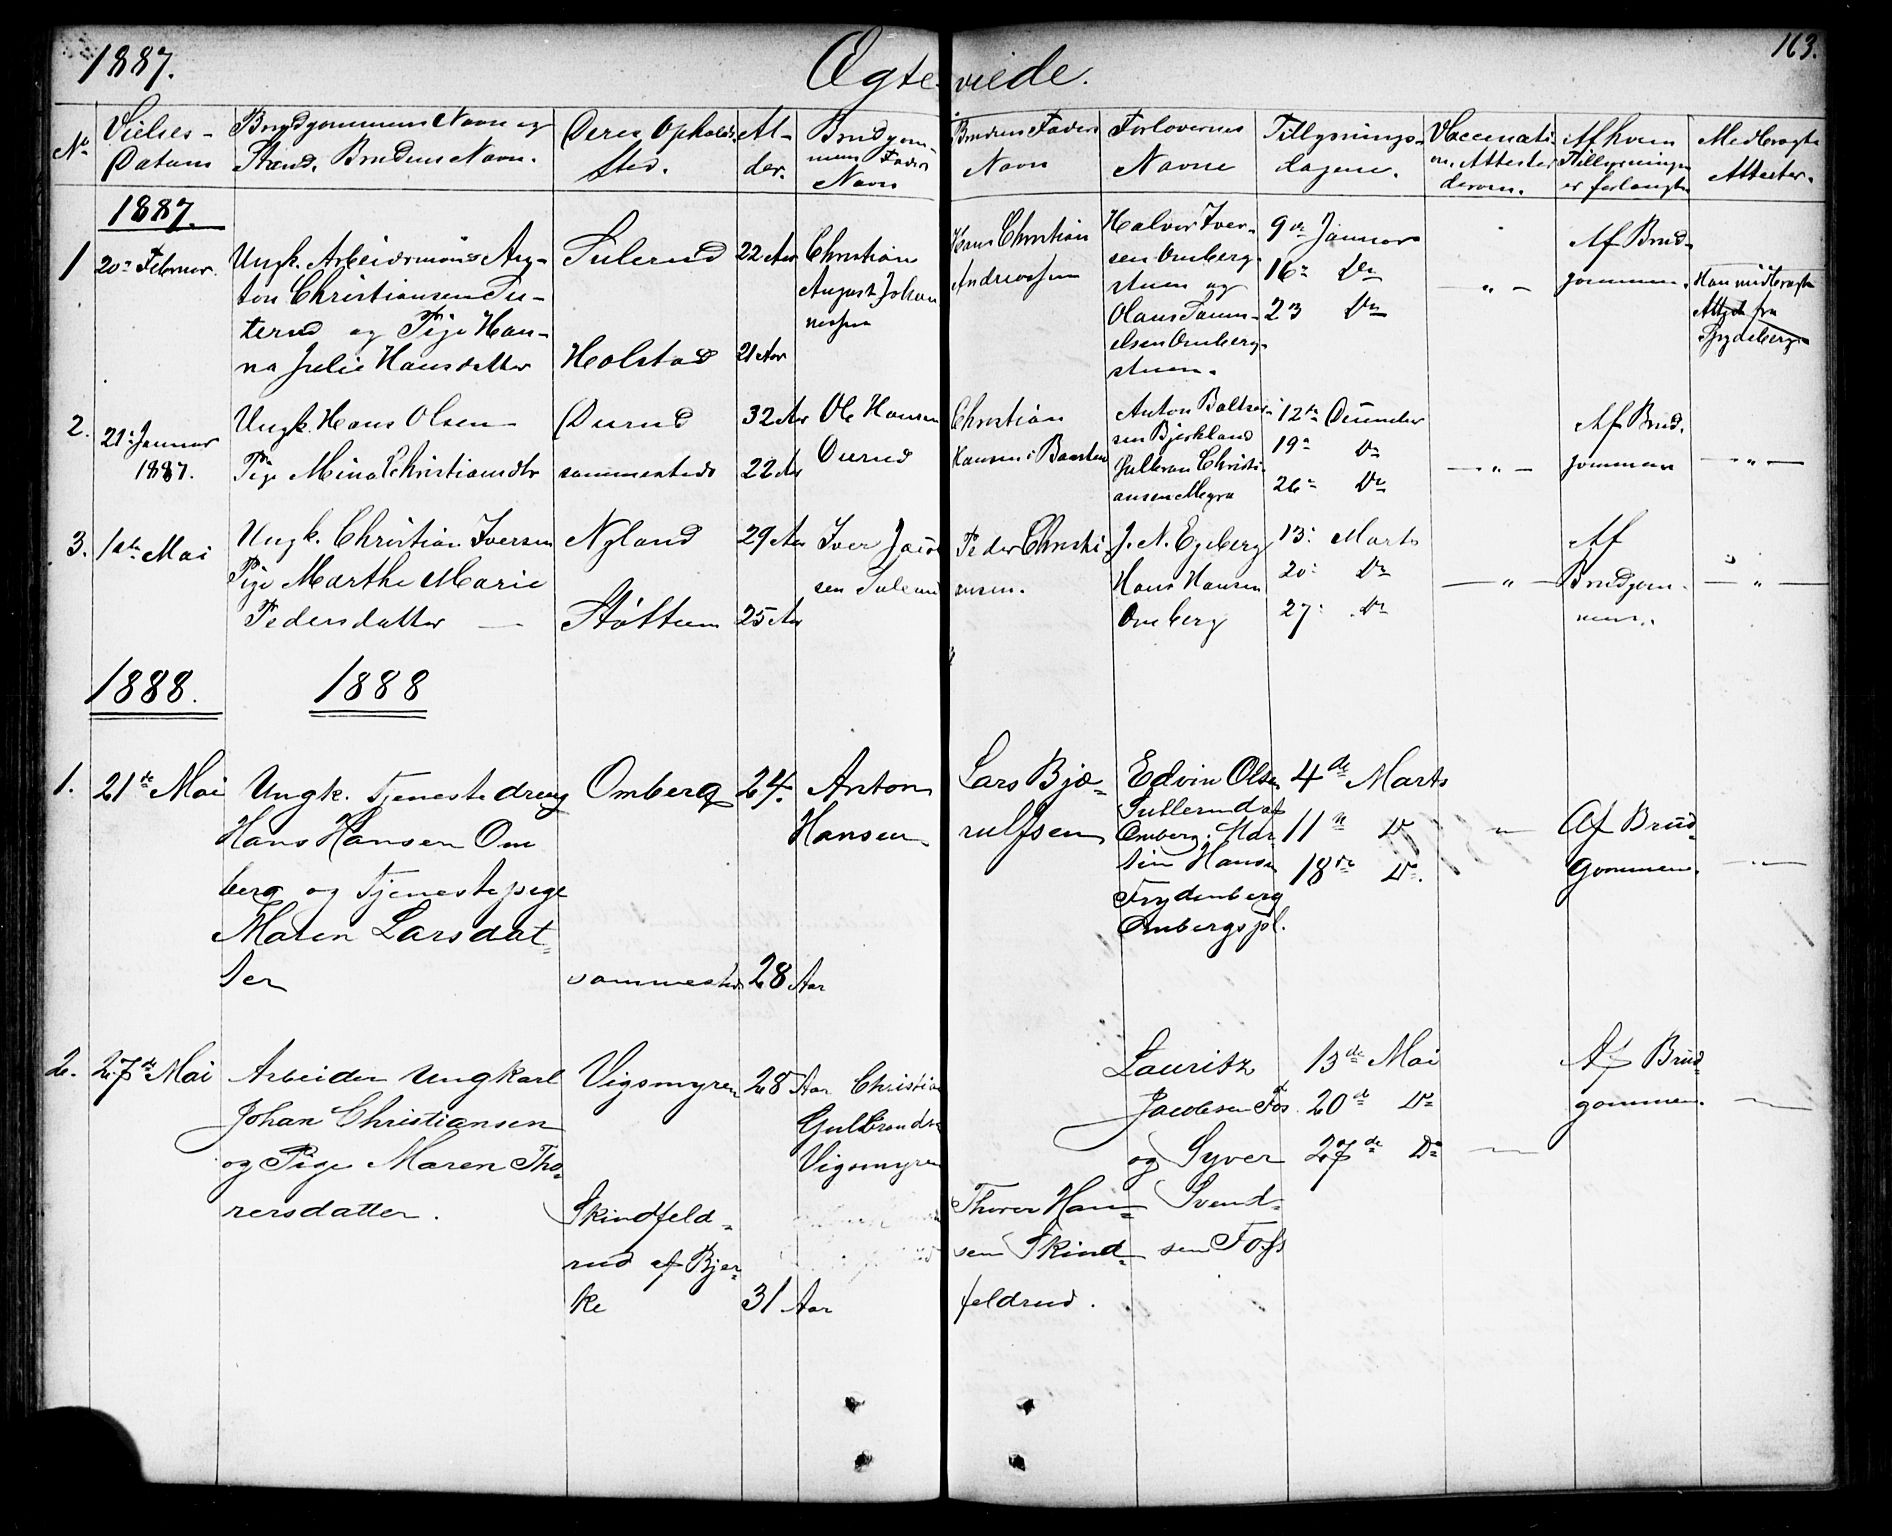 1887.
Ægteviede.
163.
No
Vielses-
Datum
Brudgommens Navn og
Stand. Brudens Navn.
Deres Opholds-
sted.
Al-
der.
Brudgom-
mens Faders
Navn
Brudens Faders
Navn
Forlovernes
Navne
Tillysnings-
dagene.
Vaccinati-
on. Attester
derom.
Af hvem
Tillysningen
er forlangt
Medbragte
Attester.
1887.
1
20de Februar.
Ungk. Arbeidsmand An-
ton Christiansen Su-
terud og Pige Han-
na Julie Hansdatter
Sulerud
Holstad
22 Aar
21 Aar
Christian
August Johan
nessen
Hans Christian
Andreassen
Halvor Iver-
sen Omberg-
stuen og
Olaus Samu-
elsen Omberg-
stuen.
9de Januar
16de Do
23 Do
- " -
Af Brud-
gommen.
Han medbragte
Attest fra
Spydeberg
2.
21de Januar
1887.
Ungk. Hans Olsen
Pige Mina Christiansdtr
Durud
sammesteds
32 Aar
22 Aar
Ole Hansen
Durud
Christian
Hansen i Baasten
Anton Baltser-
sen Bjerkland
Christi-
ansen
12te December
19de Do
26de Do
- " -
Af Brud-
gommen
- " -
3.
1ste Mai
Ungk. Christian Iversen
Pige Marthe Marie
Pedersdatter
Nyland
Støttum
29 Aar
25 Aar
Iver Jacob
sen Sulerud
Peder Christi-
ansen.
J. N. Egeberg
Hans Hansen
Omberg
13: Marts
20: Do
27: Do
- " -
Af
Brudgom-
men.
- " -
1888.
1888
1.
21de Mai
Ungk. Tjenestedreng
Hans Hansen Om
berg og Tjenestepige
Maren Larsdat-
ter
Omberg
sammesteds
24.
28 Aar
Anton
Hansen
Lars Bjø-
rulfsen
Edvin Olsen
Sullerud af
Omberg. Mar
tin Hansen
Frydenberg
Ombergspl.
4de Marts
11te Do
18de Do.
"
Af Brud-
gommen.
- " -
2.
27de Mai
Arbeider Ungkarl
Johan Christiansen
og Pige Maren Tho-
rersdatter.
Vigsmyren
Skindfeld-
rud af Bjer-
ke
28 Aar
31 Aar
Christian
Gulbrandsen
Vigsmyren
Thorer Han-
sen Skind-
feldrud.
Lauritz
Jacobsen Fos
og Syver
Svend-
sen Foss
13de Mai
20de Do
27de Do
Af Brud-
gommen.